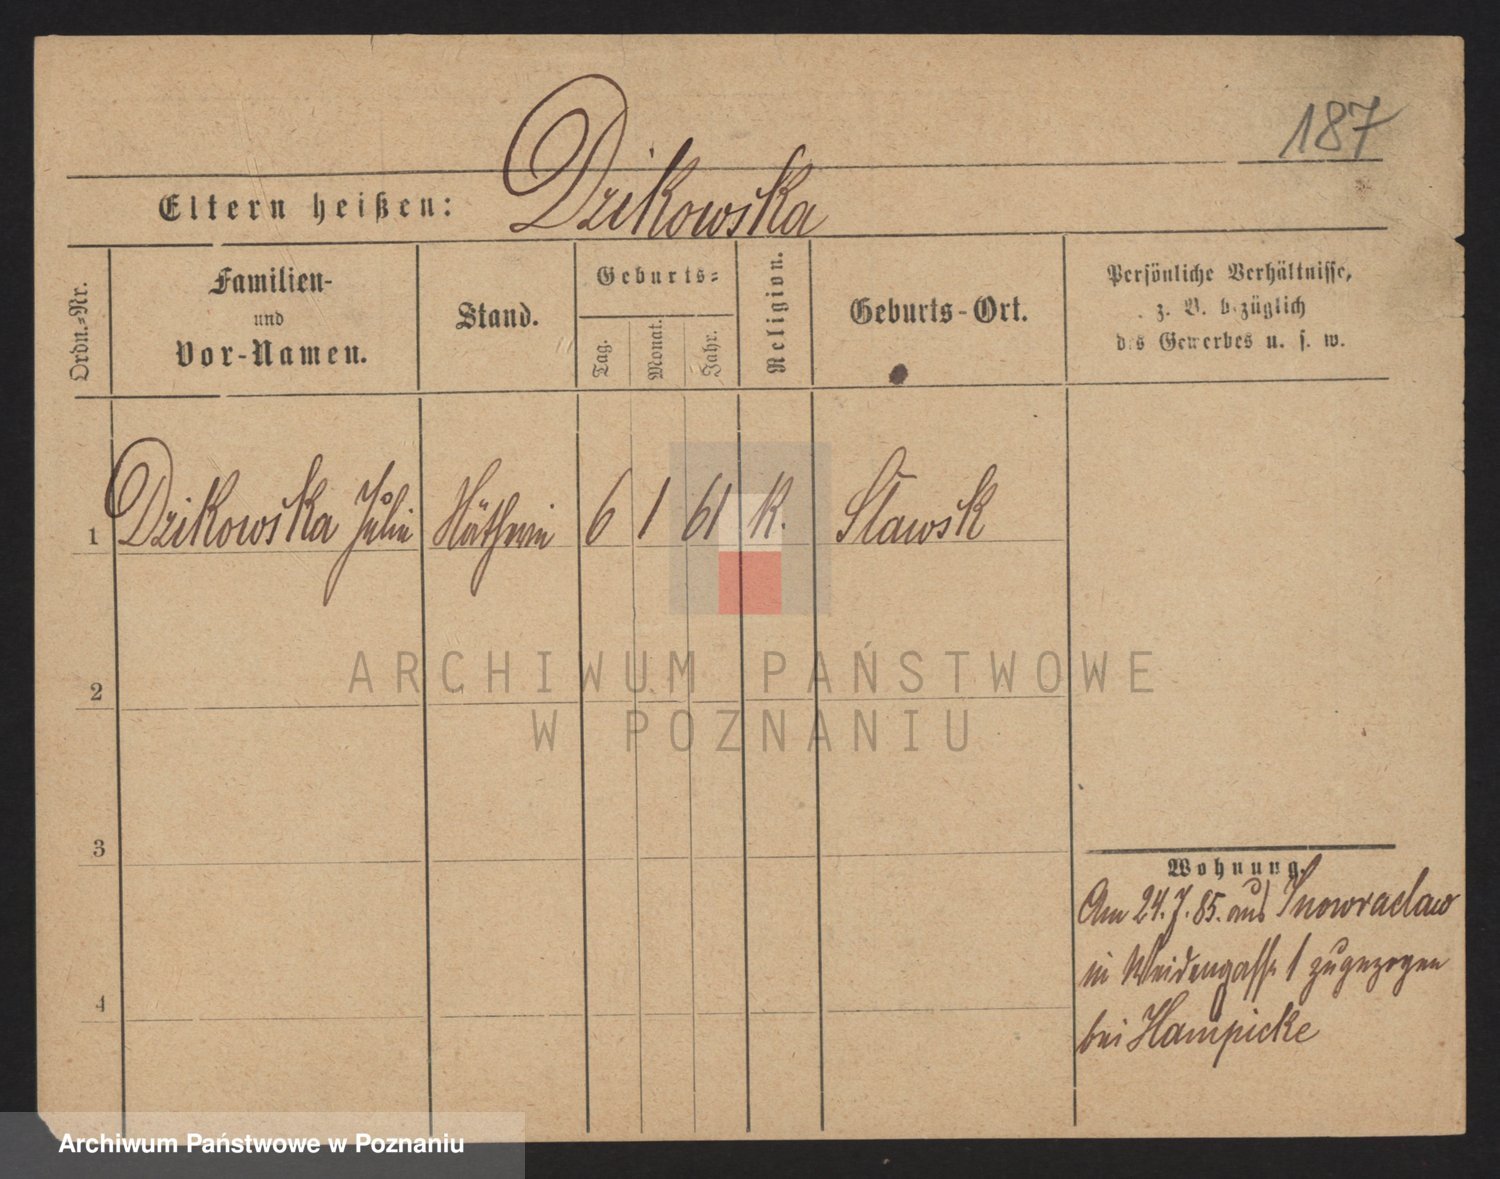 187
Eltern heißen: Dzikowska
Ordn.-Nr.
Familien-
und
Vor-Namen.
Stand.
Geburts-
Tag.
Monat.
Jahr.
Religion.
Geburts-Ort.
Persönliche Verhältnisse,
z. B. bezüglich
des Gewerbes u. s. w.
1 Dzikowska Julie Nätherin 6 1 61 K. Slawsk
2
3
4
Wohnung.
Am 24.7.85. aus Inowraclaw
in Weidengasse 1 zugezogen
bei Hampicke
ARCHIWUM PAŃSTWOWE
W POZNANIU
Archiwum Państwowe w Poznaniu